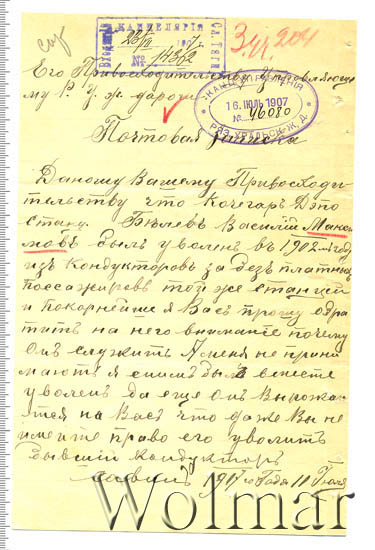 КАНЦЕЛЯРІЯ
Сл. Тяги
№ 14362
Его Привосходительству Управляюще
му Р. У. ж. дороги
КАНЦ. УПРАВЛЕНІЯ
16 ИЮЛЬ 1907
№ 46080
РЯЗ. УРАЛЬСК. Ж. Д.
Почтовая записка
Даношу Вашему Привосходи
тельству что кочегарь Дэпо
Станц. Бѣлевъ Василій Макси
мовъ былъ уволенъ въ 1902 м году
изъ Кондукторовъ за безъ платныхъ
поссажировъ той же станціи
и покорнейше я Васъ прошу обра
тить на него вниманіе почему
Онъ служить А меня не прини
мають я снимъ былъ вместе
уволенъ да еще онъ Выражa
ется на Васъ что даже Вы не
имеите право его уволить
бывшій Кондукторъ
1907 го Года 11 Июля
Wolmar